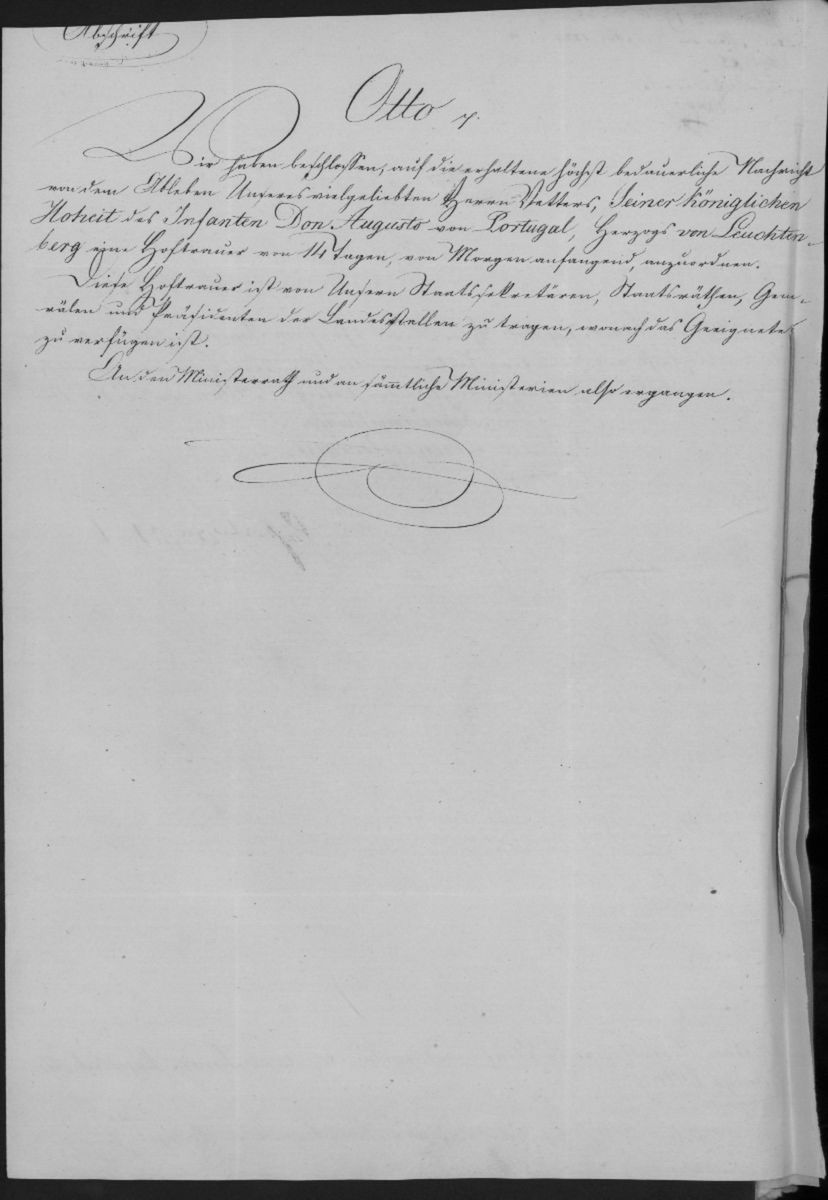 Abschrift
Otto
Wir haben beschlossen, auf die erhaltene höchst bedauerliche Nachricht
von dem Ableben Unseres vielgeliebten Herrn Vetters, Seiner Königlichen
Hoheit des Infanten Don Augusto von Portugal, Herzogs von Leuchten-
berg eine Hoftrauer von 14 Tagen, von Morgen anfangend, anzuordnen.
Diese Hoftrauer ist von Unsern Staatssekretären, Staatsräthen, Gene-
rälen und Präsidenten der Landesstellen zu tragen, wonach das Geeignete
zu verfügen ist.
An den Ministerrath und an sämtliche Ministerien also ergangen.